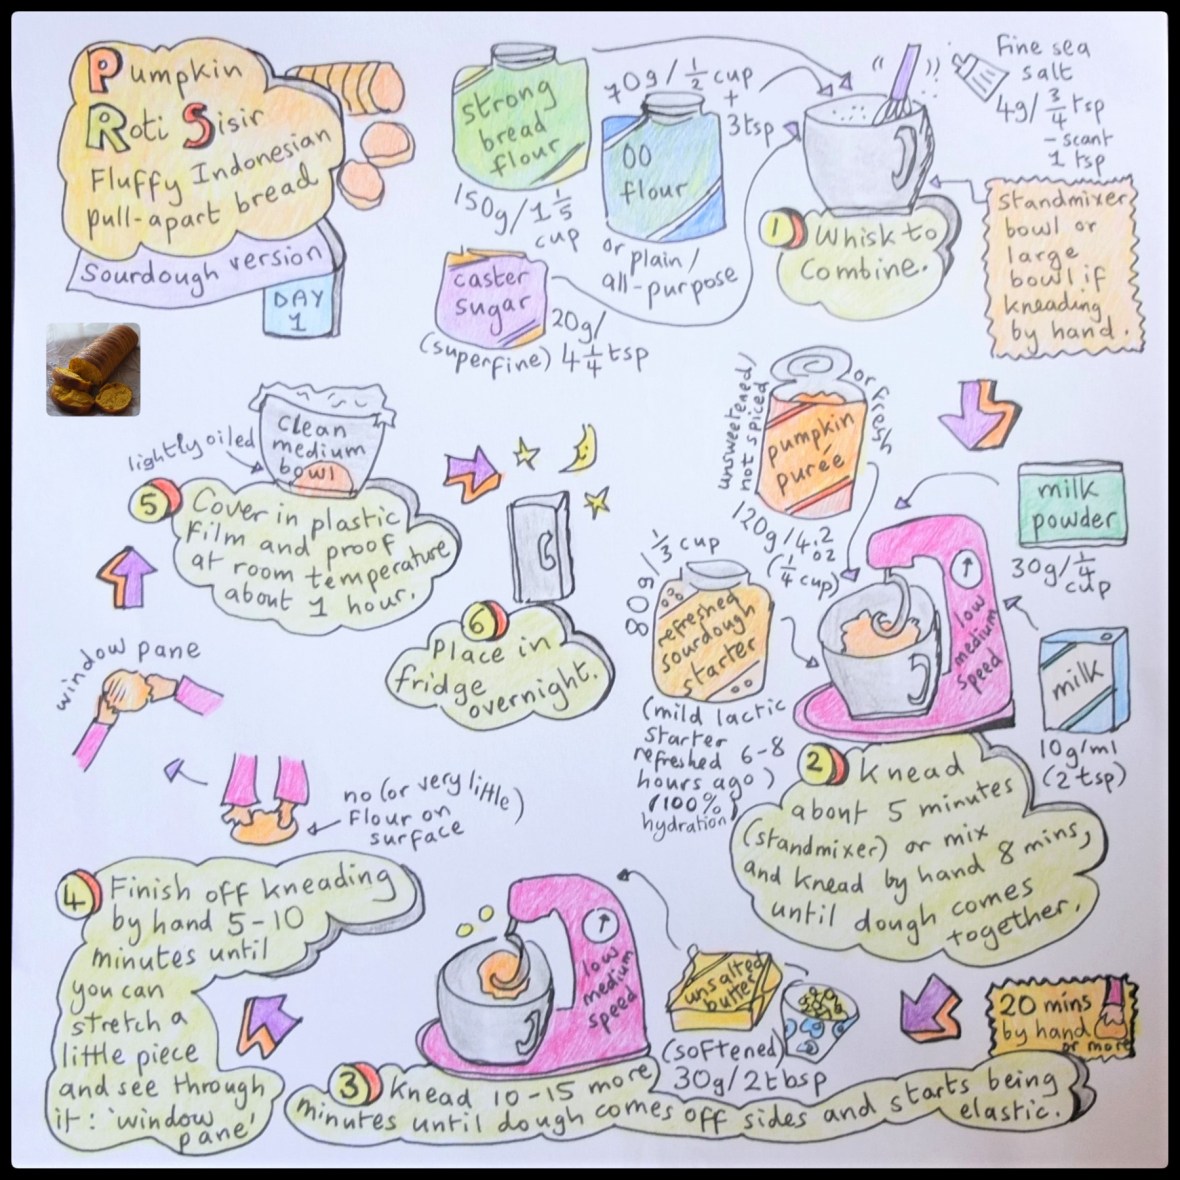 Pumpkin
Roti Sisir
Fluffy Indonesian
pull-apart bread
Sourdough version
DAY
1
strong
bread
flour
150g/1 1/5
cup
70g/ 1/2 cup
+
3tsp
00
flour
or plain/
all-purpose
caster
sugar
(superfine)
20g/
4 1/4 tsp
fine sea
salt
4g/ 3/4 tsp
- scant
1 tsp
standmixer
bowl or
large
bowl if
kneading
by hand.
1 Whisk to
combine.
unsweetened/
not spiced
or fresh
pumpkin
purée
120g/4.2
oz
(1/4 cup)
milk
powder
30g/ 1/4
cup
80g/ 1/3 cup
refreshed
sourdough
starter
(mild lactic
starter
refreshed 6-8
hours ago)
(100%
hydration)
low
medium
speed
milk
10g/ml
(2 tsp)
2 Knead
about 5 minutes
(standmixer) or mix
and knead by hand 8 mins,
until dough comes
together.
20 mins
by hand
or more
unsalted
butter
(softened)
30g/2tbsp
low
medium
speed
3 Knead 10-15 more
minutes until dough comes off sides and starts being
elastic.
4 Finish off kneading
by hand 5-10
minutes until
you can
stretch a
little piece
and see through
it: 'window
pane'
no (or very little)
flour on
surface
window pane
lightly oiled
clean
medium
bowl
5 Cover in plastic
film and proof
at room temperature
about 1 hour.
6
Place in
fridge
overnight.